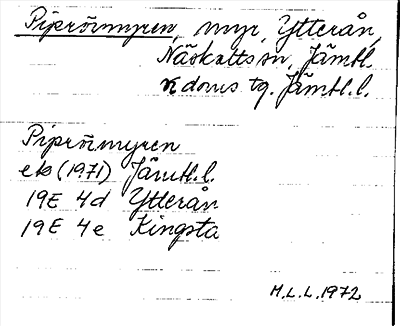 Piprörmyren, myr, Ytterån,
Näskotts sn, Jämtl.
Rödöns tg. Jämtl.l.
Piprörmyren
ek (1971) Jämtl.l.
19E 4d Ytterån
19E 4e Kingsta
M.L.L. 1972